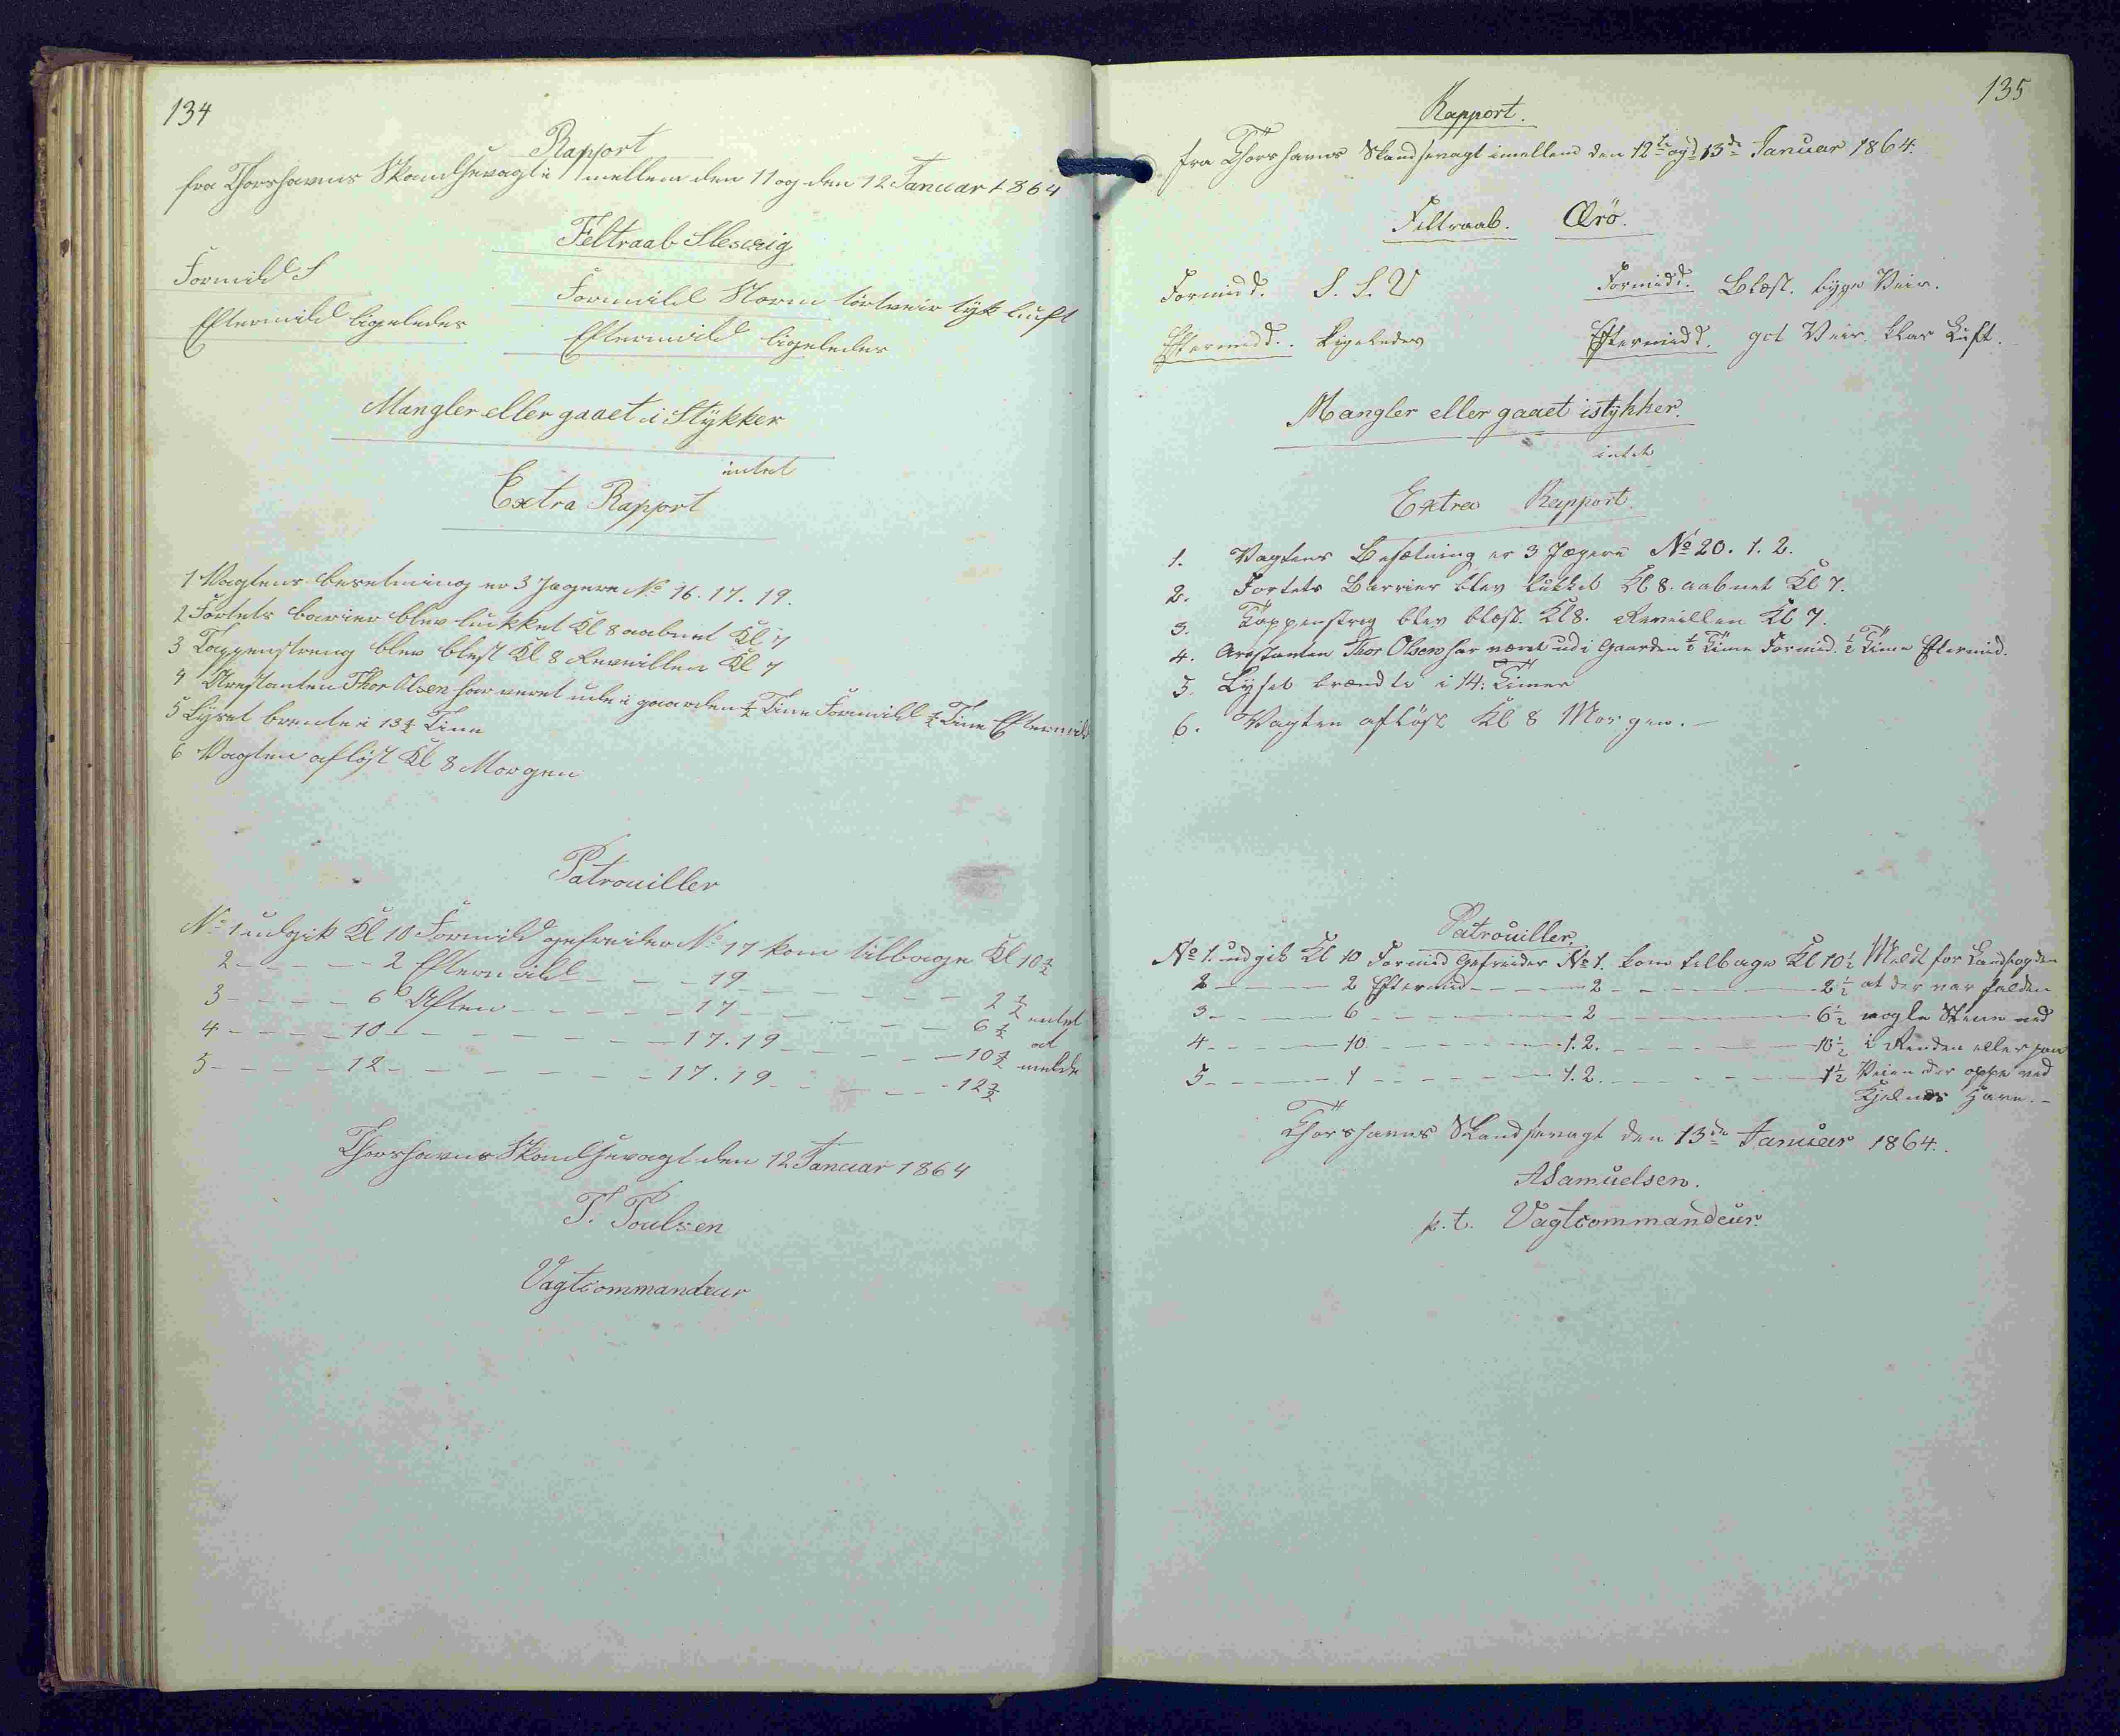 134
Rapport
fra Thorshavns Skandsevagt i mellem den 11 og den 12 Januar 1864
Feltraab Slesvig
Formidd S
Formidd Storm törtveir tyk luft
Eftermidd ligeledes
Eftermidd ligeledes
Mangler eller gaaet i Stykker
intet
Extra Rapport
1 Vagtens besetning er 3 Jagere No 16. 17. 19.
2 Fortets barier blev lukket Kl 8 aabnet Kl 7
3 Tappenstreng blev blest Kl 8 Reveillen Kl 7
4 Arestanten Thor Olsen har veret ude i gaarden ½ Time Formidd ½ Time Eftermidd
5 Lyset brente i 13½ Time
6 Vagten afløst Kl 8 Morgen
Patrouiller
No 1 udgik Kl 10 Formidd gefreider No 17 kom tilbage Kl 10½
2 - - - - 2 Eftermidd - - - 19 - - - - - - 2½ intet
3 - - - - 6 Aften - - - - - 17 - - - - - - 6½ at
4 - - - - 10 - - - - - - - 17. 19 - - - - - 10½ melde
5 - - - - 12 - - - - - - - 17. 19 - - - - - 12½
Thorshavns Skandsevagt den 12 Januar 1864
T. Poulsen
Vagtcommandeur
135
Rapport.
fra Thorshavns Skandsevagt imellem den 12te og 13de Januar 1864.
Feltraab. Ærö.
Formidd. S. S. V
Formidd. Blæst. byge Veir.
Eftermidd. Ligeledes
Eftermidd. got Veir. klar Luft.
Mangler eller gaaet istykker.
intet
Extra Rapport.
1. Vagtens Besætning er 3 Jægere No 20. 1. 2.
2. Fortets Barrier blev lukket Kl 8. aabnet Kl 7.
3. Tappenstrig blev blæst. Kl 8. Reveillen Kl 7.
4. Arestanten Thor Olsen har været ud i Gaarden ½ Time Formid. ½ Time Eftermid.
5. Lyset brændte i 14. Timer
6. Vagten aflöst Kl 8 Morgen. -
Patrouiller.
No 1. udgik Kl 10 Formid Gefreider No 1. kom tilbage Kl 10½ Meldt for Landfogden
2 - - - - 2 Eftermid - - - - 2 - - - - - - 2½ at der var falden
3 - - - - 6 - - - - - - - 2 - - - - - - 6½ nogle Steine ned
4 - - - - 10 - - - - - - - 1. 2. - - - - - 10½ i Renden eller paa
5 - - - - 1 - - - - - - - 1. 2. - - - - - 1½ Veien der oppe ved
Kjelnes Have. -
Thorshavns Skandsevagt den 13de Januar 1864.
ASamuelsen.
p. t. Vagtcommandeur.